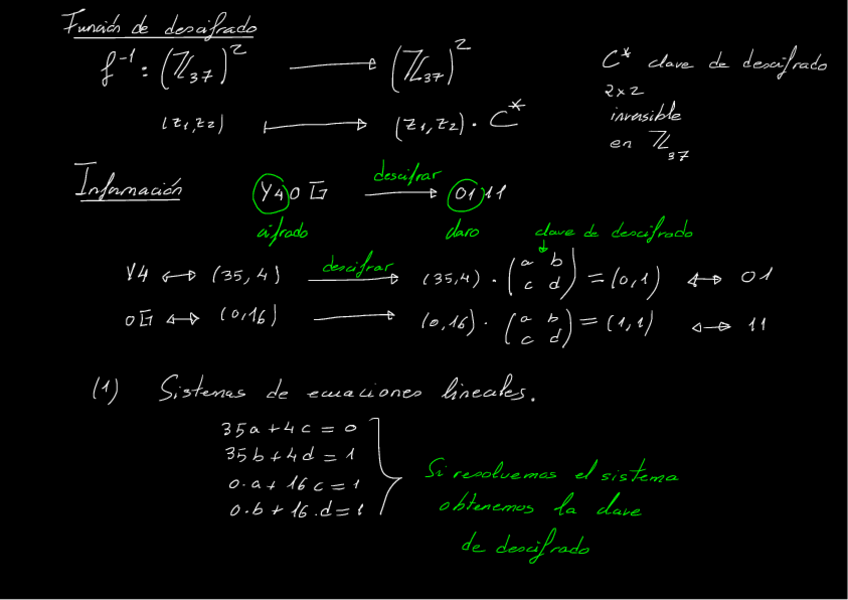 Función de descifrado
f⁻¹ : (ℤ₃₇)² ⟶ (ℤ₃₇)²
C* clave de descifrado
2x2
inversible
en ℤ₃₇
(z₁,z₂) ⟼ (z₁,z₂) · C*
Información
Y4OG descifrar ⟶ 0111
cifrado claro
clave de descifrado
Y4 ↔ (35,4) descifrar ⟶ (35,4) · (a b c d) = (0,1) ↔ 01
0G ↔ (0,16) ⟶ (0,16) · (a b c d) = (1,1) ↔ 11
(1) Sistemas de ecuaciones lineales.
35a + 4c = 0
35b + 4d = 1
0·a + 16c = 1
0·b + 16·d = 1
Si resolvemos el sistema
obtenemos la clave
de descifrado